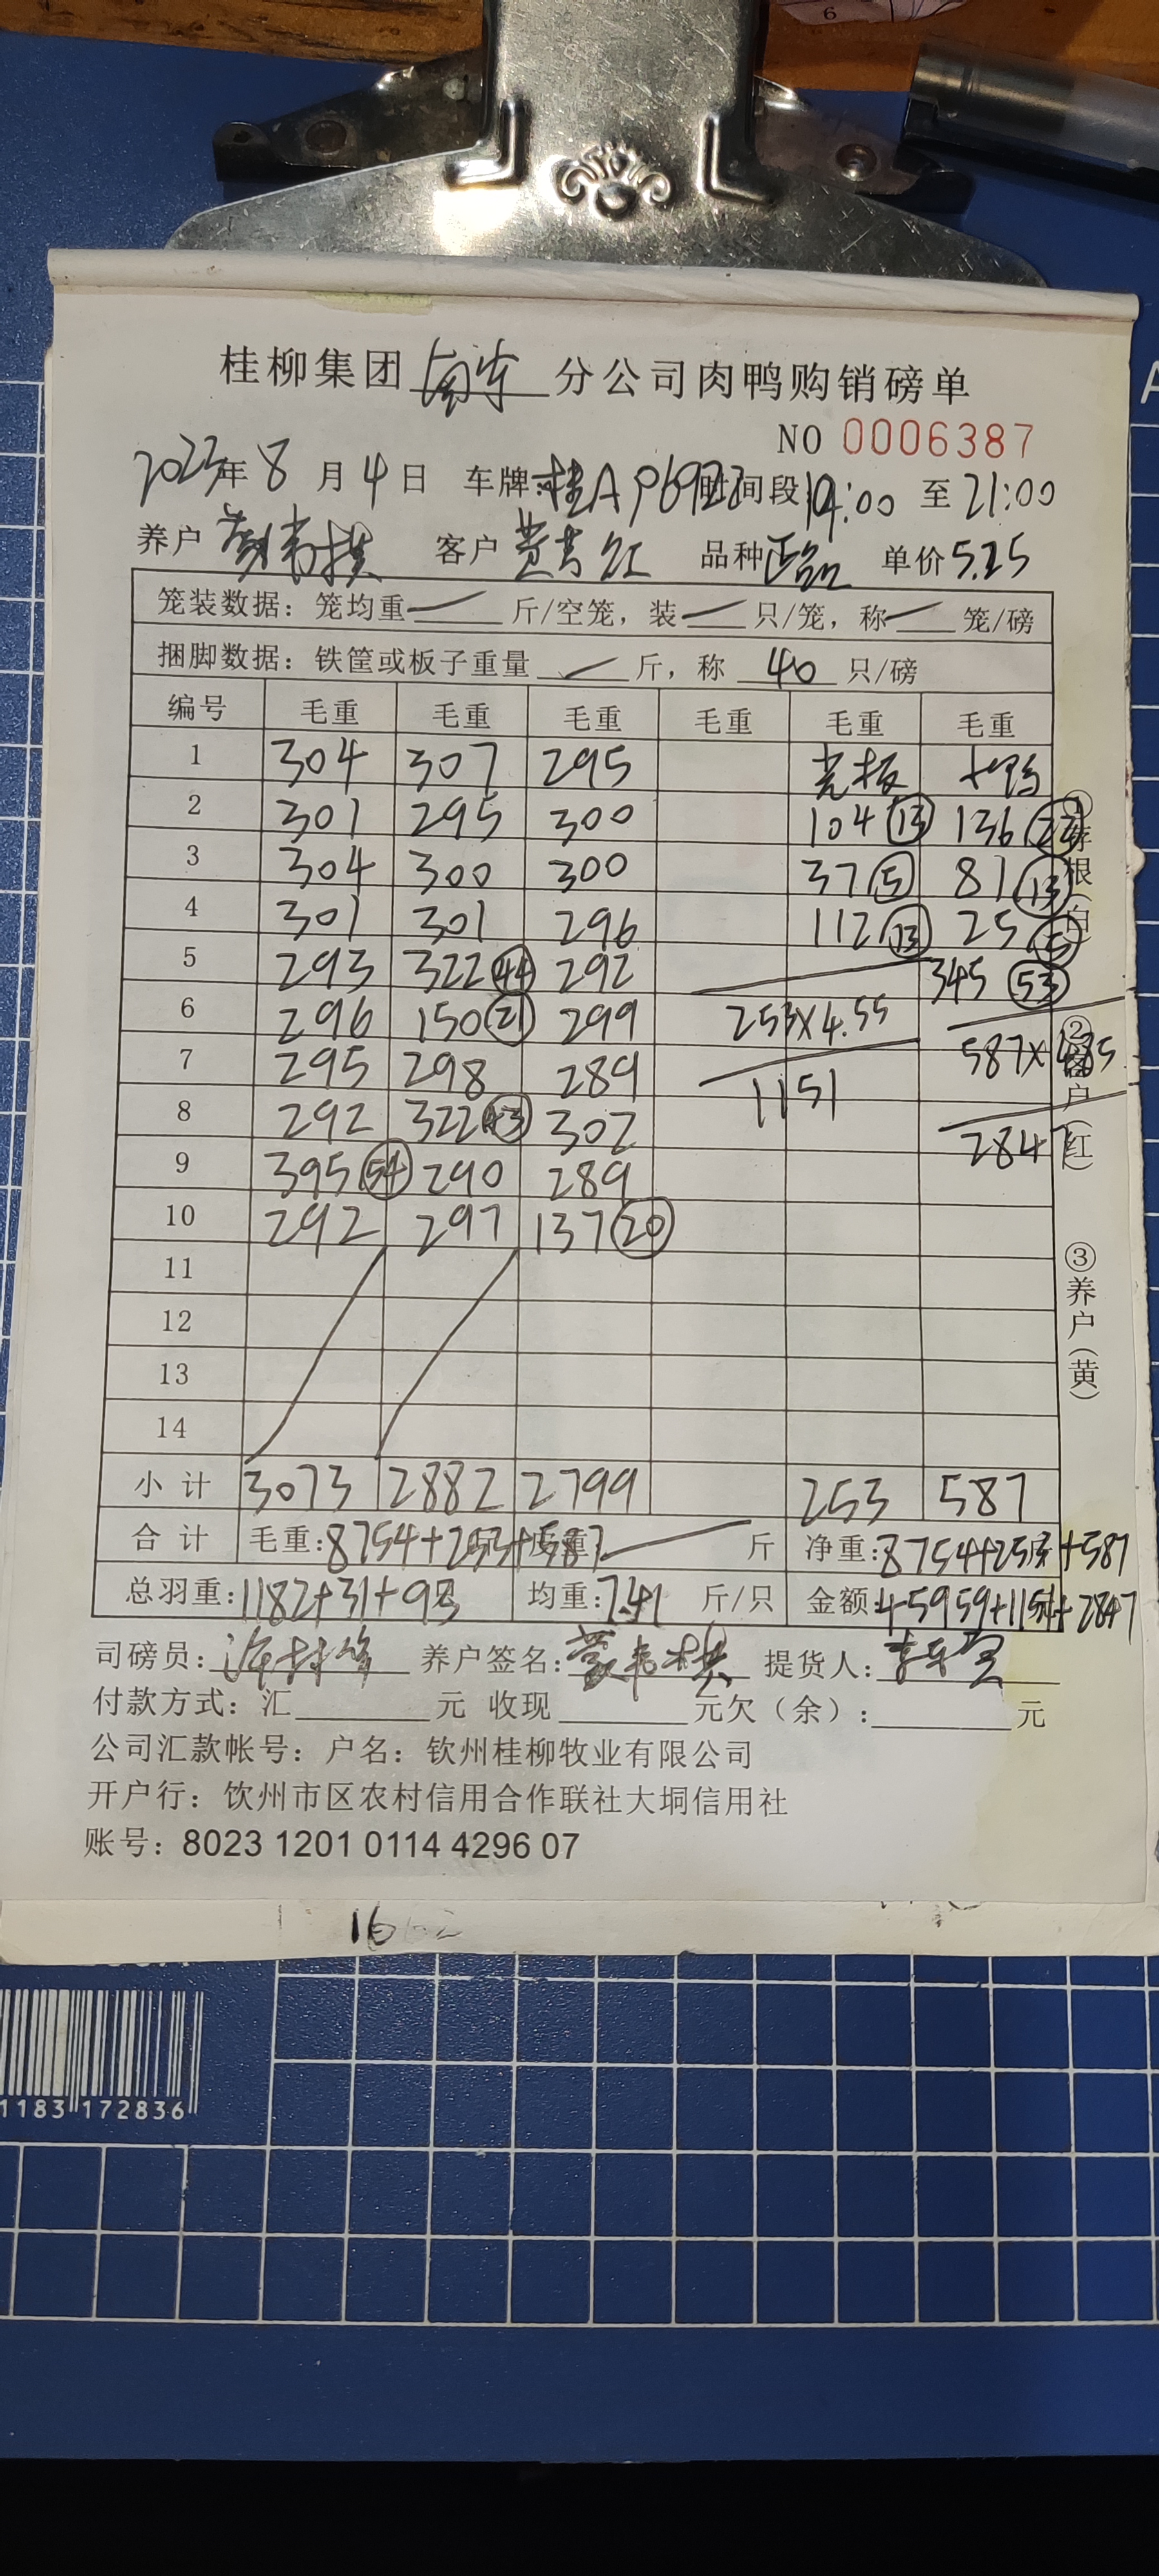 6
桂柳集团 南宁 分公司肉鸭购销磅单
NO 0006387
2023年 8 月 4 日 车牌:桂A 时间段 至 21:00
养户 客户 黄吉红 品种 单价 5.25
笼装数据：笼均重 斤/空笼，装 只/笼，称 笼/磅
捆脚数据：铁筐或板子重量 斤，称 40 只/磅
编号 毛重 毛重 毛重 毛重 毛重 毛重
1 304 307 295 光板 小鸭
2 301 295 300 104 (13) 136
3 304 300 300 37 (5) 81 (13)
4 301 301 296 112 (13) 25
5 293 322 (44) 292 345 (53)
6 296 150 (21) 299 253×4.55
7 295 298 289 1151 587×4.85
8 292 322 (43) 302 2847
9 395 (54) 290 289
10 292 297 137 (20)
11
12
13
14
小计 3073 2882 2799 253 587
合计 毛重:8754+253+587 皮重: 斤 净重:8754+253+587
总羽重:1182+31+93 均重:7.41 斤/只 金额:45959+1151+2847
司磅员: 养户签名: 提货人:
付款方式：汇 元 收现 元欠（余）: 元
公司汇款帐号：户名：钦州桂柳牧业有限公司
开户行：饮州市区农村信用合作联社大垌信用社
账号：8023 1201 0114 4296 07
①存根（白）
②客户（红）
③养户（黄）
1183 172836